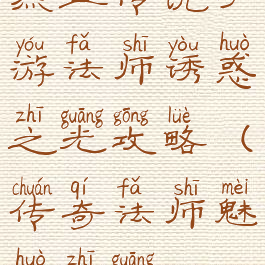 yóu fǎ shī yòu huò
游法师诱惑
zhī guāng gōng lüè
之光攻略（
chuán qí fǎ shī mèi
传奇法师魅
huò zhī guāng